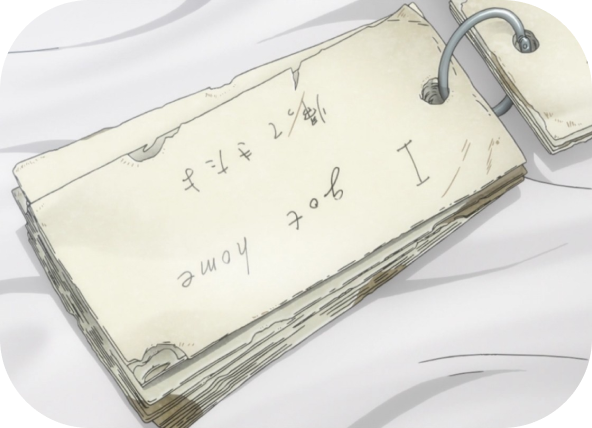 I got home
帰ってきたよ